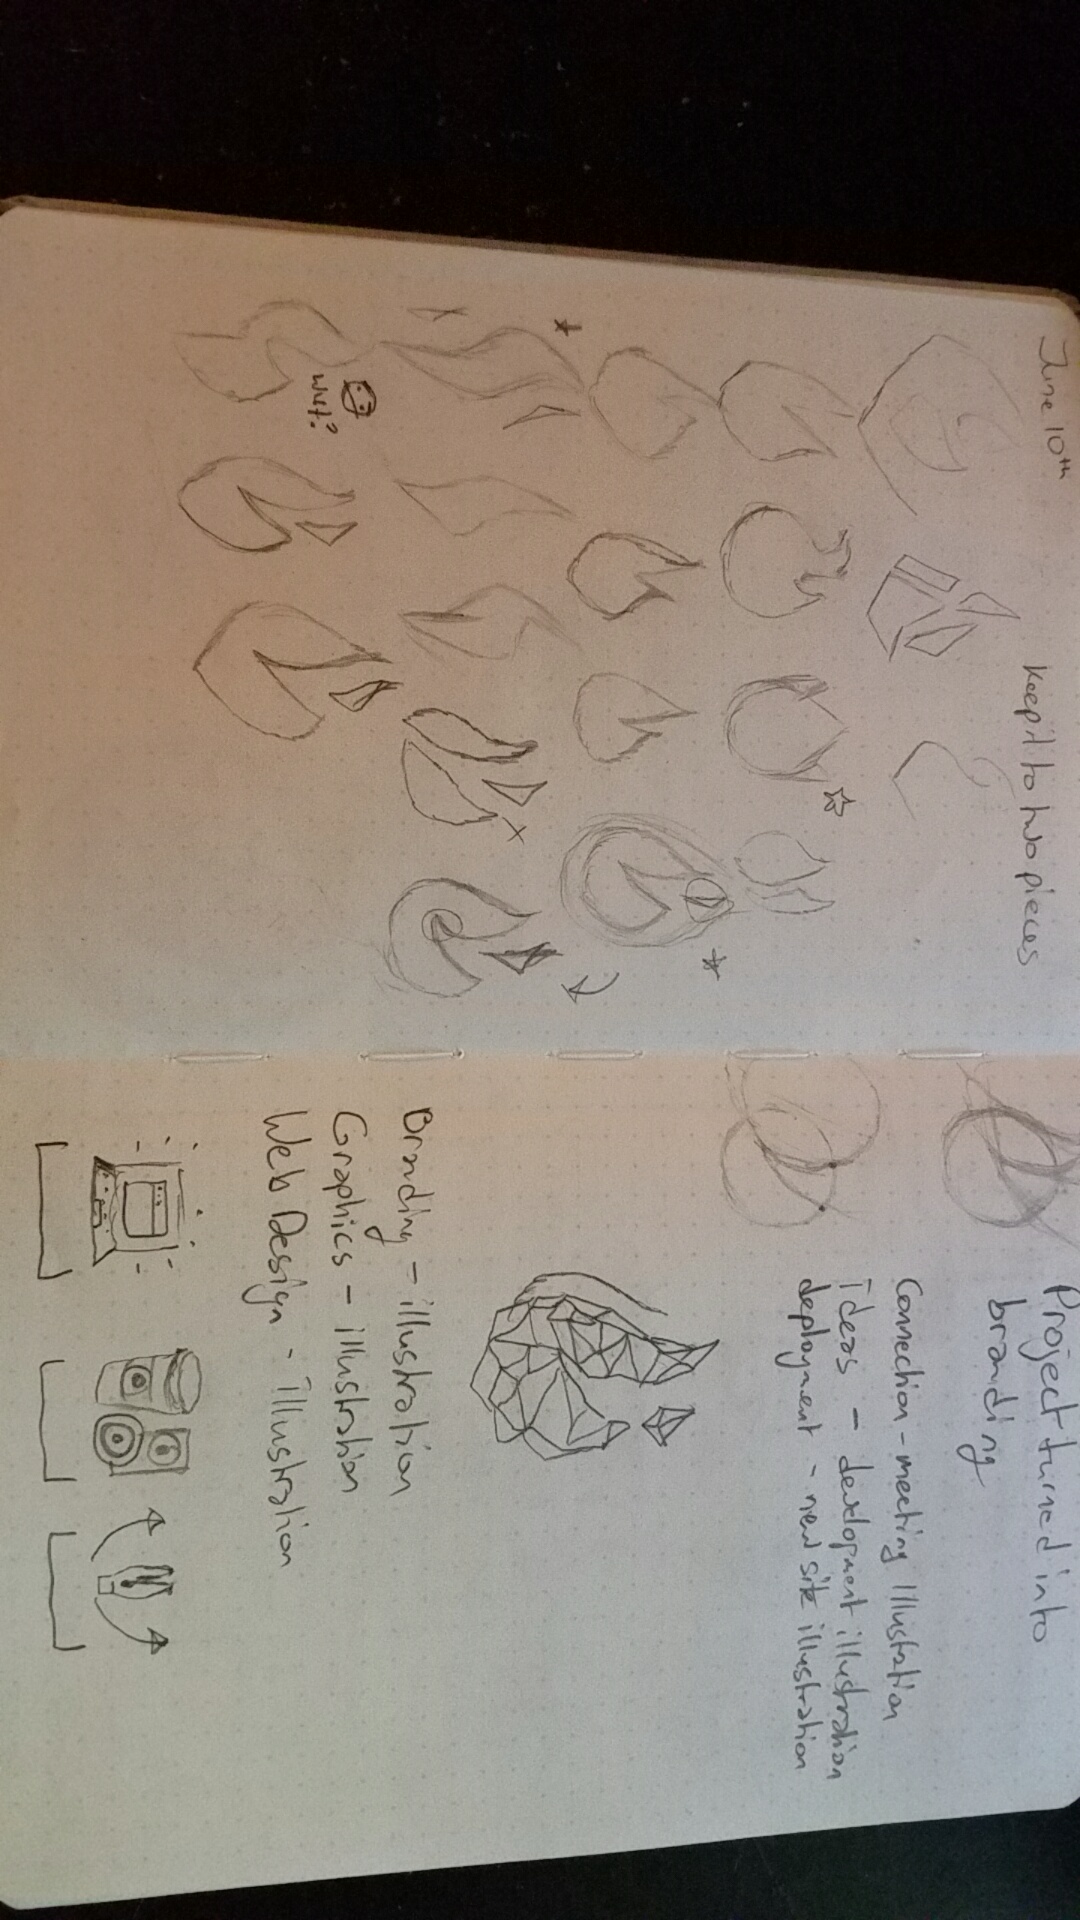 June 10th
Keep it to two pieces
wut?
Project turned into
branding
Connection - meeting Illustration
Ideas - development illustration
deployment - new site illustration
Branding - illustration
Graphics - illustration
Web Design - Illustration